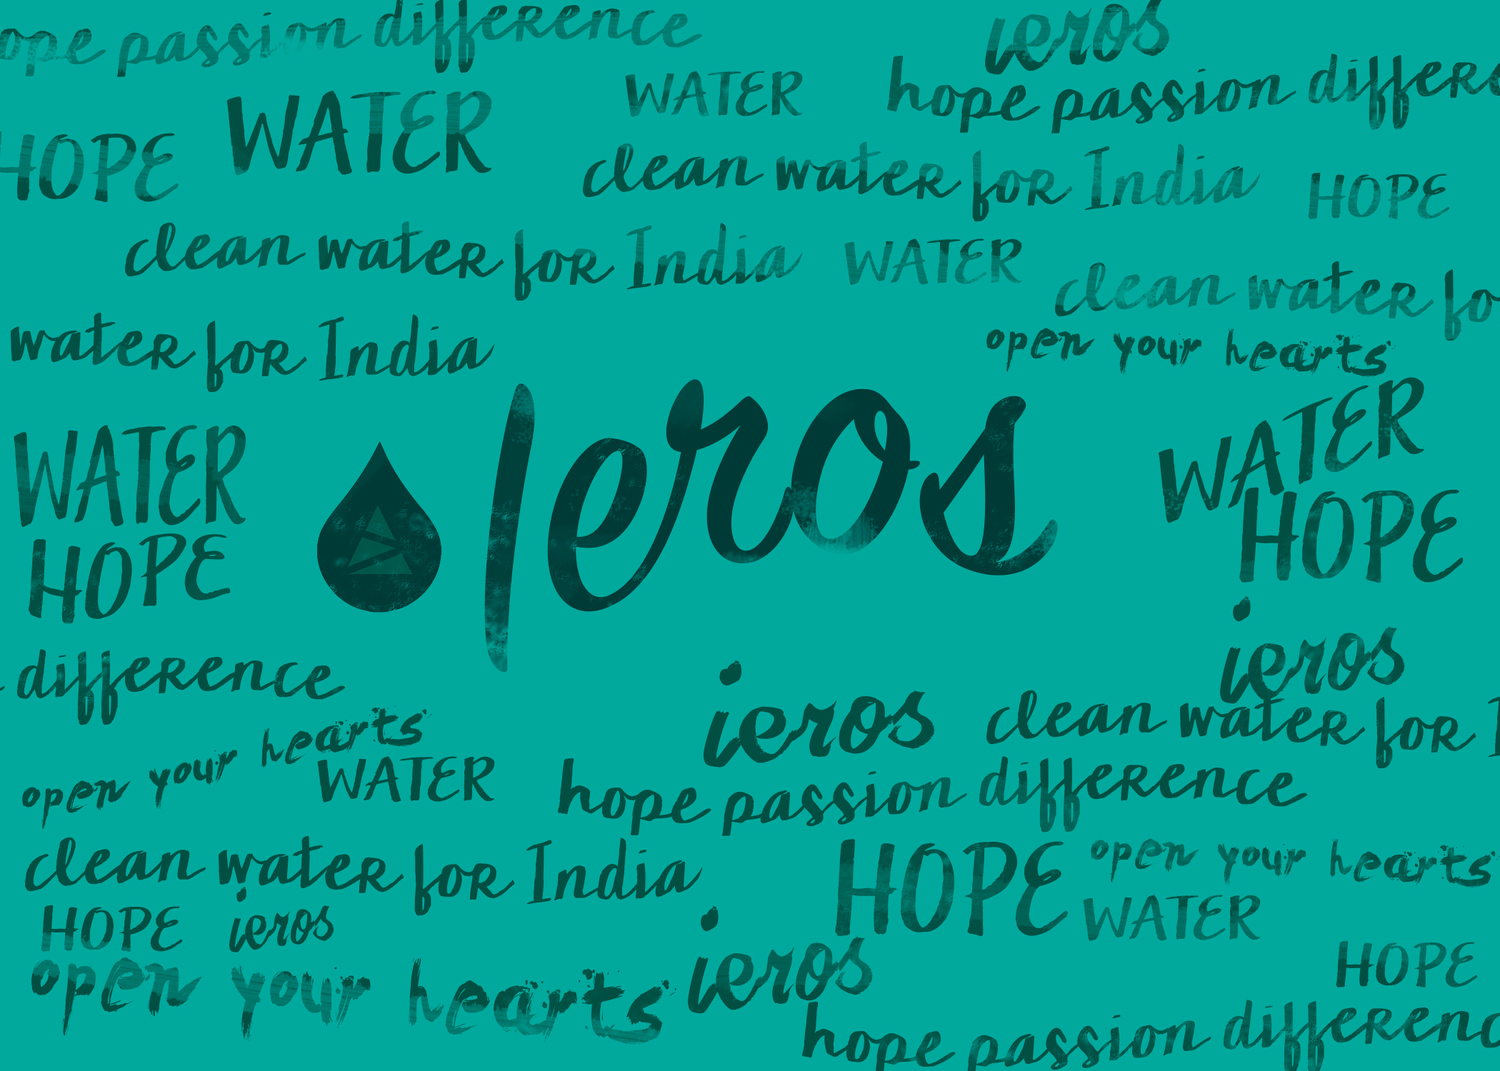 ope passion difference
ieros
hope passion differe
WATER
WATER
HOPE
clean water for India
HOPE
clean water for India
WATER
clean water fo
water for India
open your hearts
ieros
WATER
HOPE
WATER
HOPE
difference
ieros
ieros
clean water for I
open your hearts
WATER
hope passion difference
clean water for India
HOPE
open your hearts
WATER
HOPE
ieros
ieros
HOPE
open your hearts
hope passion differenc